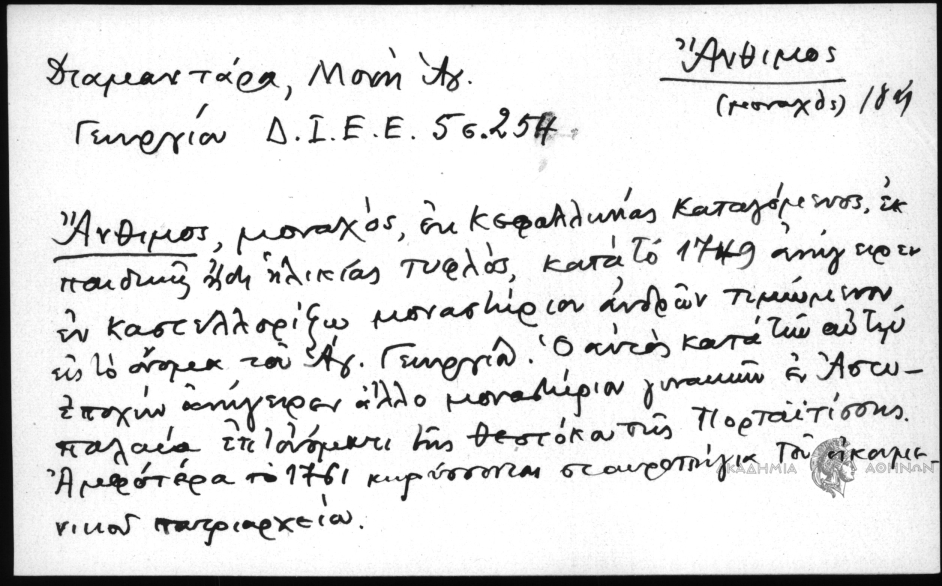 Ἄνθιμος
(μοναχὸς) 18η
Διαμαντάρα, Μονὴ Ἁγ.
Γεωργίου Δ.Ι.Ε.Ε. 5 σ. 254
Ἄνθιμος, μοναχός, ἐκ Κεφαλληνίας καταγόμενος, ἐκ
παιδικῆς ἤδη ἡλικίας τυφλὸς, κατὰ τὸ 1749 ἀνήγειρεν
ἐν Καστελλορίζῳ μοναστήριον ἀνδρῶν τιμώμενον
εἰς τὸ ὄνομα τοῦ Ἁγ. Γεωργίου. Ὁ αὐτὸς κατὰ τὴν αὐτὴν
ἐποχὴν ἀνήγειρεν ἄλλο μοναστήριον γυναικῶν ἐν Ἀστυ-
παλαίᾳ ἐπ' ὀνόματι τῆς Θεοτόκου τῆς Πορταϊτίσσης.
Ἀμφότερα τὸ 1751 κηρύσσονται σταυροπήγια τοῦ οἰκουμε-
νικοῦ πατριαρχείου.
ΑΚΑΔΗΜΙΑ ΑΘΗΝΩΝ